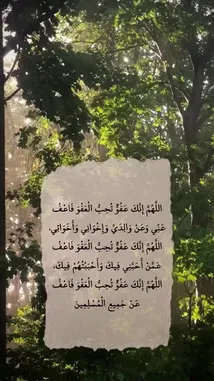 اللَّهُمَّ إِنَّكَ عَفُوٌّ تُحِبُّ الْعَفْوَ فَاعْفُ
عَنِّي وَعَنْ وَالِدَيَّ وَإِخْوَانِي وَأَخَوَاتِي،
اللَّهُمَّ إِنَّكَ عَفُوٌّ تُحِبُّ الْعَفْوَ فَاعْفُ
عَمَّنْ أَحَبَّنِي فِيكَ وَأَحْبَبْتُهُمْ فِيكَ،
اللَّهُمَّ إِنَّكَ عَفُوٌّ تُحِبُّ الْعَفْوَ فَاعْفُ
عَنْ جَمِيعِ الْمُسْلِمِينَ